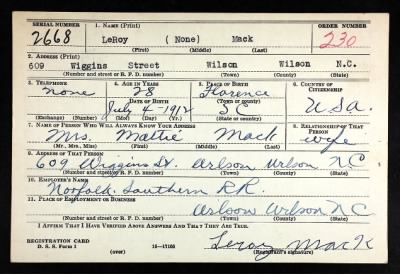 SERIAL NUMBER 1. NAME (Print) ORDER NUMBER
2668 LeRoy (None) Mack 230
(First) (Middle) (Last)
2. ADDRESS (Print)
609 Wiggins Street Wilson Wilson N.C.
(Number and street or R. F. D. number) (Town) (County) (State)
3. TELEPHONE 4. AGE IN YEARS 5. PLACE OF BIRTH 6. COUNTRY OF CITIZENSHIP
none 28 Florence
DATE OF BIRTH (Town or county)
July 4-1912 SC USA.
(Exchange) (Number) (Mo.) (Day) (Yr.) (State or country)
7. NAME OF PERSON WHO WILL ALWAYS KNOW YOUR ADDRESS 8. RELATIONSHIP OF THAT PERSON
Mrs. Mattie Mack wife
(Mr., Mrs., Miss) (First) (Middle) (Last)
9. ADDRESS OF THAT PERSON
609 Wiggins St. Wilson Wilson NC
(Number and street or R. F. D. number) (Town) (County) (State)
10. EMPLOYER'S NAME
Norfolk Southern RR.
11. PLACE OF EMPLOYMENT OR BUSINESS
Wilson Wilson NC
(Number and street or R. F. D. number) (Town) (County) (State)
I AFFIRM THAT I HAVE VERIFIED ABOVE ANSWERS AND THAT THEY ARE TRUE.
REGISTRATION CARD
D. S. S. Form 1 (over) 16-17105 Leroy Mack
(Registrant's signature)